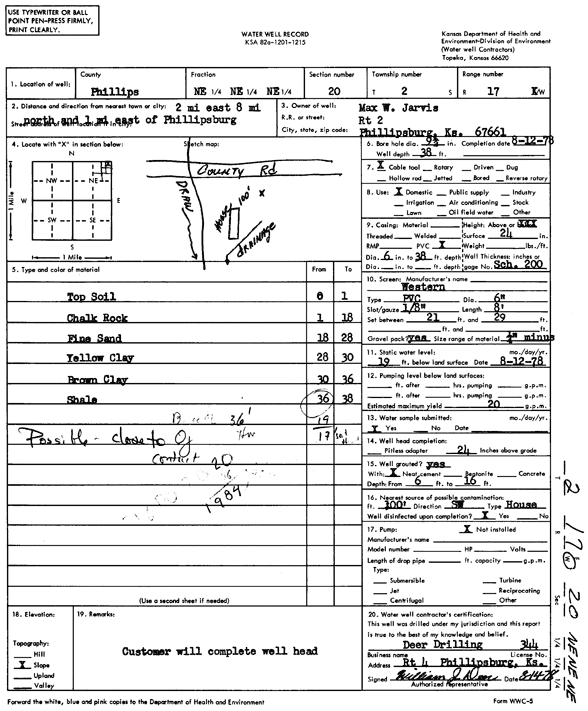 USE TYPEWRITER OR BALL
POINT PEN-PRESS FIRMLY,
PRINT CLEARLY.
WATER WELL RECORD
KSA 82a-1201-1215
Kansas Department of Health and
Environment-Division of Environment
(Water well Contractors)
Topeka, Kansas 66620
1. Location of well: County Phillips Fraction NE 1/4 NE 1/4 NE 1/4 Section number 20 Township number T 2 S Range number R 17 E/W
2. Distance and direction from nearest town or city: 2 mi east 8 mi
north and 1 mi east of Phillipsburg
Street address of well location if in city:
3. Owner of well: Max W. Jarvis
R.R. or street: Rt 2
City, state, zip code: Phillipsburg, Ks. 67661
4. Locate with "X" in section below:
N
NW NE
W E
SW SE
S
1 Mile
1 Mile
Sketch map:
COUNTY Rd
DRAW
HOUSE 100' X
DRAINAGE
6. Bore hole dia. in. Completion date 8-12-78
Well depth 38 ft.
7. X Cable tool Rotary Driven Dug
Hollow rod Jetted Bored Reverse rotary
8. Use: X Domestic Public supply Industry
Irrigation Air conditioning Stock
Lawn Oil field water Other
9. Casing: Material Height: Above or
Threaded Welded Surface 24 in.
RMP PVC X Weight lbs./ft.
Dia. 6 in. to 38 ft. depth Wall Thickness: inches or
Dia. in. to ft. depth gage No. Sch. 200
5. Type and color of material From To
Top Soil 0 1
Chalk Rock 1 18
Fine Sand 18 28
Yellow Clay 28 30
Brown Clay 30 36
Shale 36 38
36'
19
17
Possible - close to Of
contact
20
1984
(Use a second sheet if needed)
10. Screen: Manufacturer's name
Western
Type PVC Dia. 6"
Slot/gauze 1/8" Length 8'
Set between 21 ft. and 29 ft.
ft. and ft.
Gravel pack? yes Size range of material 1/2" minus
11. Static water level: mo./day/yr.
19 ft. below land surface Date 8-12-78
12. Pumping level below land surfaces:
ft. after hrs. pumping g.p.m.
ft. after hrs. pumping g.p.m.
Estimated maximum yield 20 g.p.m.
13. Water sample submitted: mo./day/yr.
X Yes No Date
14. Well head completion:
Pitless adapter 24 Inches above grade
15. Well grouted? yes
With: X Neat cement Bentonite Concrete
Depth: From 6 ft. to 16 ft.
16. Nearest source of possible contamination:
ft. 100' Direction SW Type House
Well disinfected upon completion? X Yes No
17. Pump: X Not installed
Manufacturer's name
Model number HP Volts
Length of drop pipe ft. capacity g.p.m.
Type:
Submersible Turbine
Jet Reciprocating
Centrifugal Other
18. Elevation:
Topography:
Hill
X Slope
Upland
Valley
19. Remarks:
Customer will complete well head
20. Water well contractor's certification:
This well was drilled under my jurisdiction and this report
is true to the best of my knowledge and belief.
Deer Drilling 344
Business name License No.
Address Rt 4 Phillipsburg, Ks.
Signed Date 8-14-78
Authorized representative
Forward the white, blue and pink copies to the Department of Health and Environment
Form WWC-5
T 2 R 17 W Sec 20 NE NE NE
1/4 1/4 1/4